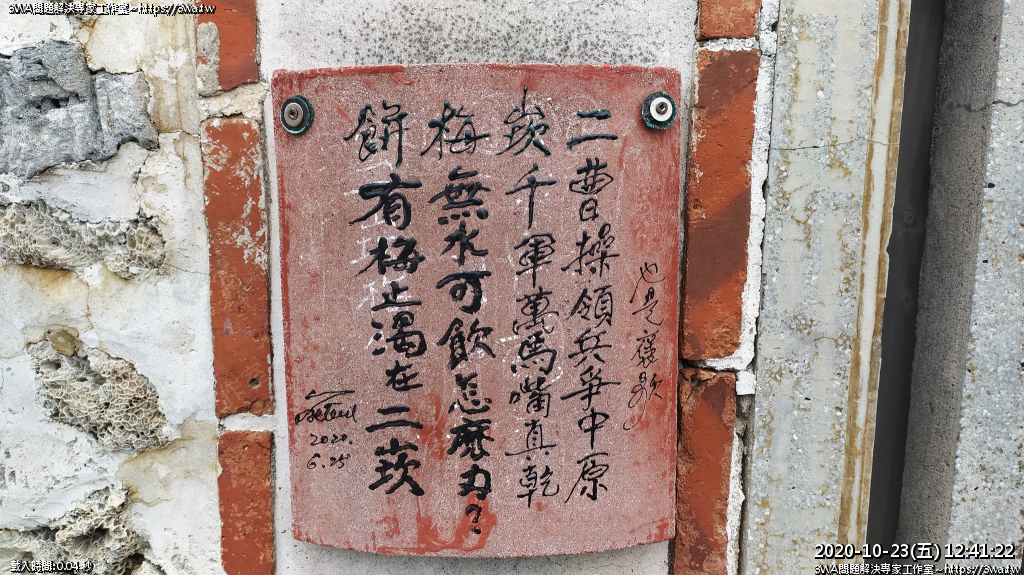 3WA問題解決專家工作室~https://3wa.tw
也是褒歌
二曹操領兵爭中原
崁千軍萬馬嘴真乾
梅無水可飲怎麼办?
餅有梅止渴在二崁
2020.
6.25
2020-10-23(五) 12:41:22
載入時間:0.04 秒
3WA問題解決專家工作室~https://3wa.tw